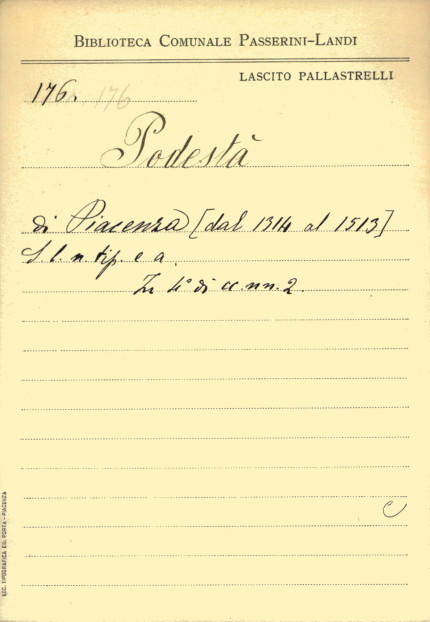 BIBLIOTECA COMUNALE PASSERINI-LANDI
LASCITO PALLASTRELLI
176. 176
Podestà
di Piacenza [dal 1314 al 1513]
S. l. n. tip. e a.
In 4° di cc. nn. 2.
C
SOC. TIPOGRAFICA ED. PORTA - PIACENZA